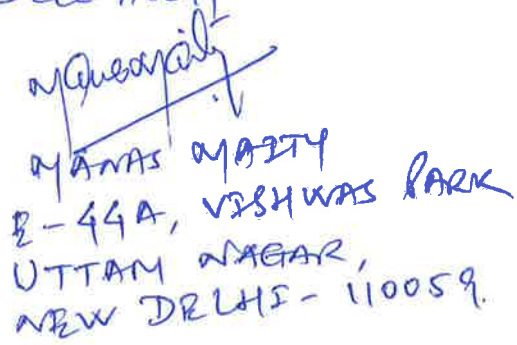 MANAS MAITY
E-44A, VISHWAS PARK
UTTAM NAGAR,
NEW DELHI - 110059.